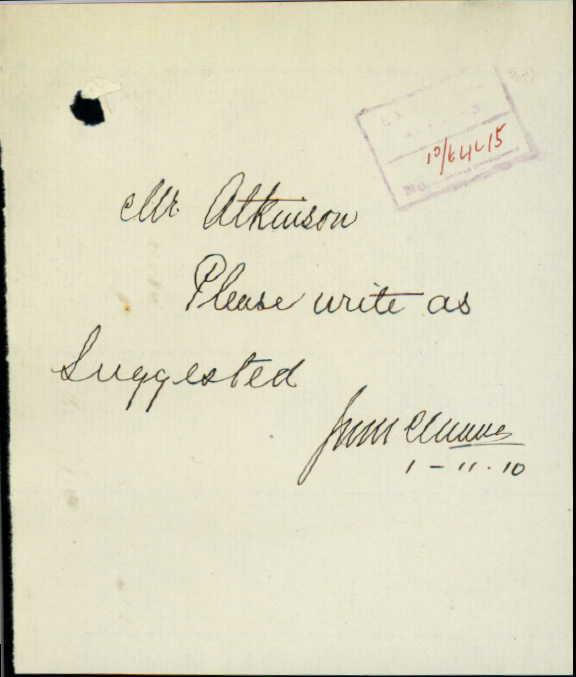 10/6445
Mr. Atkinson
Please write as
Suggested
1-11.10